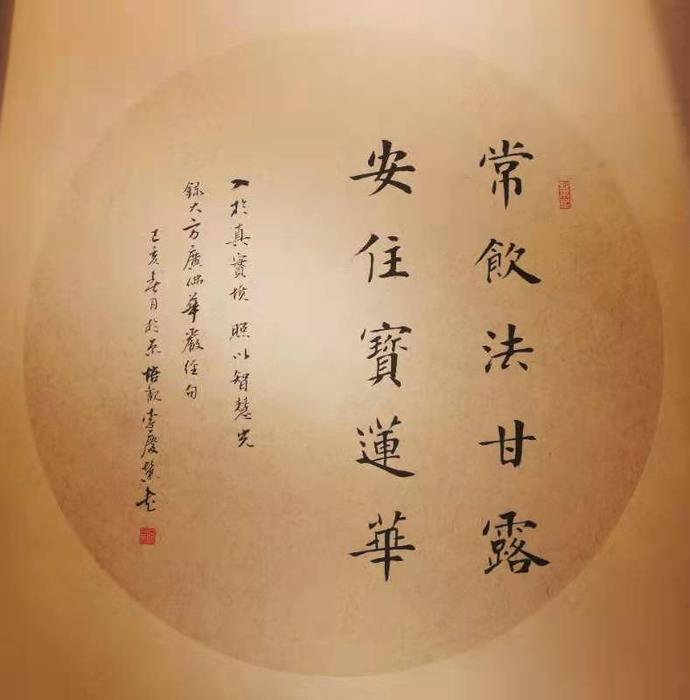 常飲法甘露
安住寶蓮華
入於真實境 照以智慧光
錄大方廣佛華嚴經句
己亥春月於京 培歡李慶